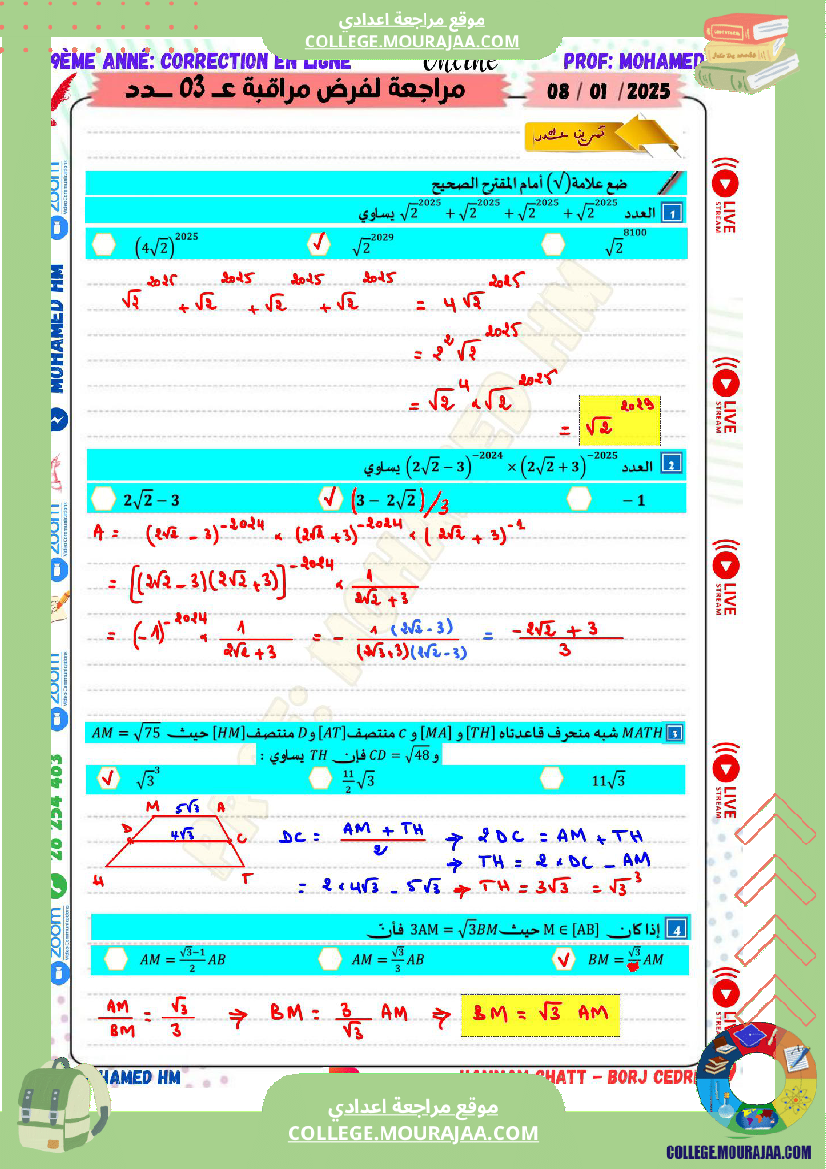 موقع مراجعة اعدادي
COLLEGE.MOURAJAA.COM
9ÈME ANNÉ: CORRECTION EN LIGNE
Online
PROF: MOHAMED
مراجعة لفرض مراقبة عـ 03 ــدد
08 / 01 /2025
ضع علامة(√) أمام المقترح الصحيح
1 العدد √2^2025 + √2^2025 + √2^2025 + √2^2025 يساوي
(4√2)^2025 ✓ √2^2029 √2^8100
√2^2025 + √2^2025 + √2^2025 + √2^2025 = 4√2^2025
= 2^2 √2^2025
= √2^4 × √2^2025
= √2^2029
2 العدد (2√2 − 3)^−2024 × (2√2 + 3)^−2025 يساوي
2√2 − 3 ✓ (3 − 2√2)/3 − 1
A = (2√2 − 3)^−2024 × (2√2 + 3)^−2024 × (2√2 + 3)^−1
= [(2√2 − 3)(2√2 + 3)]^−2024 × 1/(2√2 + 3)
= (−1)^−2024 × 1/(2√2 + 3) = − 1 (2√2 − 3)/(2√3 + 3)(2√2 − 3) = (−2√2 + 3)/3
3 MATH شبه منحرف قاعدتاه [TH] و [MA] و C منتصف[AT] و D منتصف[HM] حيث AM = √75
و CD = √48 فإن TH يساوي :
✓ √3^3 11/2 √3 11√3
M 5√3 A
D 4√3 C
H T
DC = (AM + TH)/2 ⇒ 2DC = AM + TH
⇒ TH = 2 × DC − AM
= 2×4√3 − 5√3 ⇒ TH = 3√3 = √3^3
4 إذا كان M ∈ [AB] حيث 3AM = √3BM فأن
AM = (√3−1)/2 AB AM = √3/3 AB ✓ BM = √3 AM
AM/BM = √3/3 ⇒ BM = 3/√3 AM ⇒ BM = √3 AM
zoom
Video Communications
MOHAMED HM
zoom
Video Communications
zoom
Video Communications
28 254 463
zoom
LIVE
STREAM
LIVE
STREAM
LIVE
STREAM
LIVE
STREAM
HAMED HM
HAMMAM CHATT - BORJ CEDRI
موقع مراجعة اعدادي
COLLEGE.MOURAJAA.COM
COLLEGE.MOURAJAA.COM